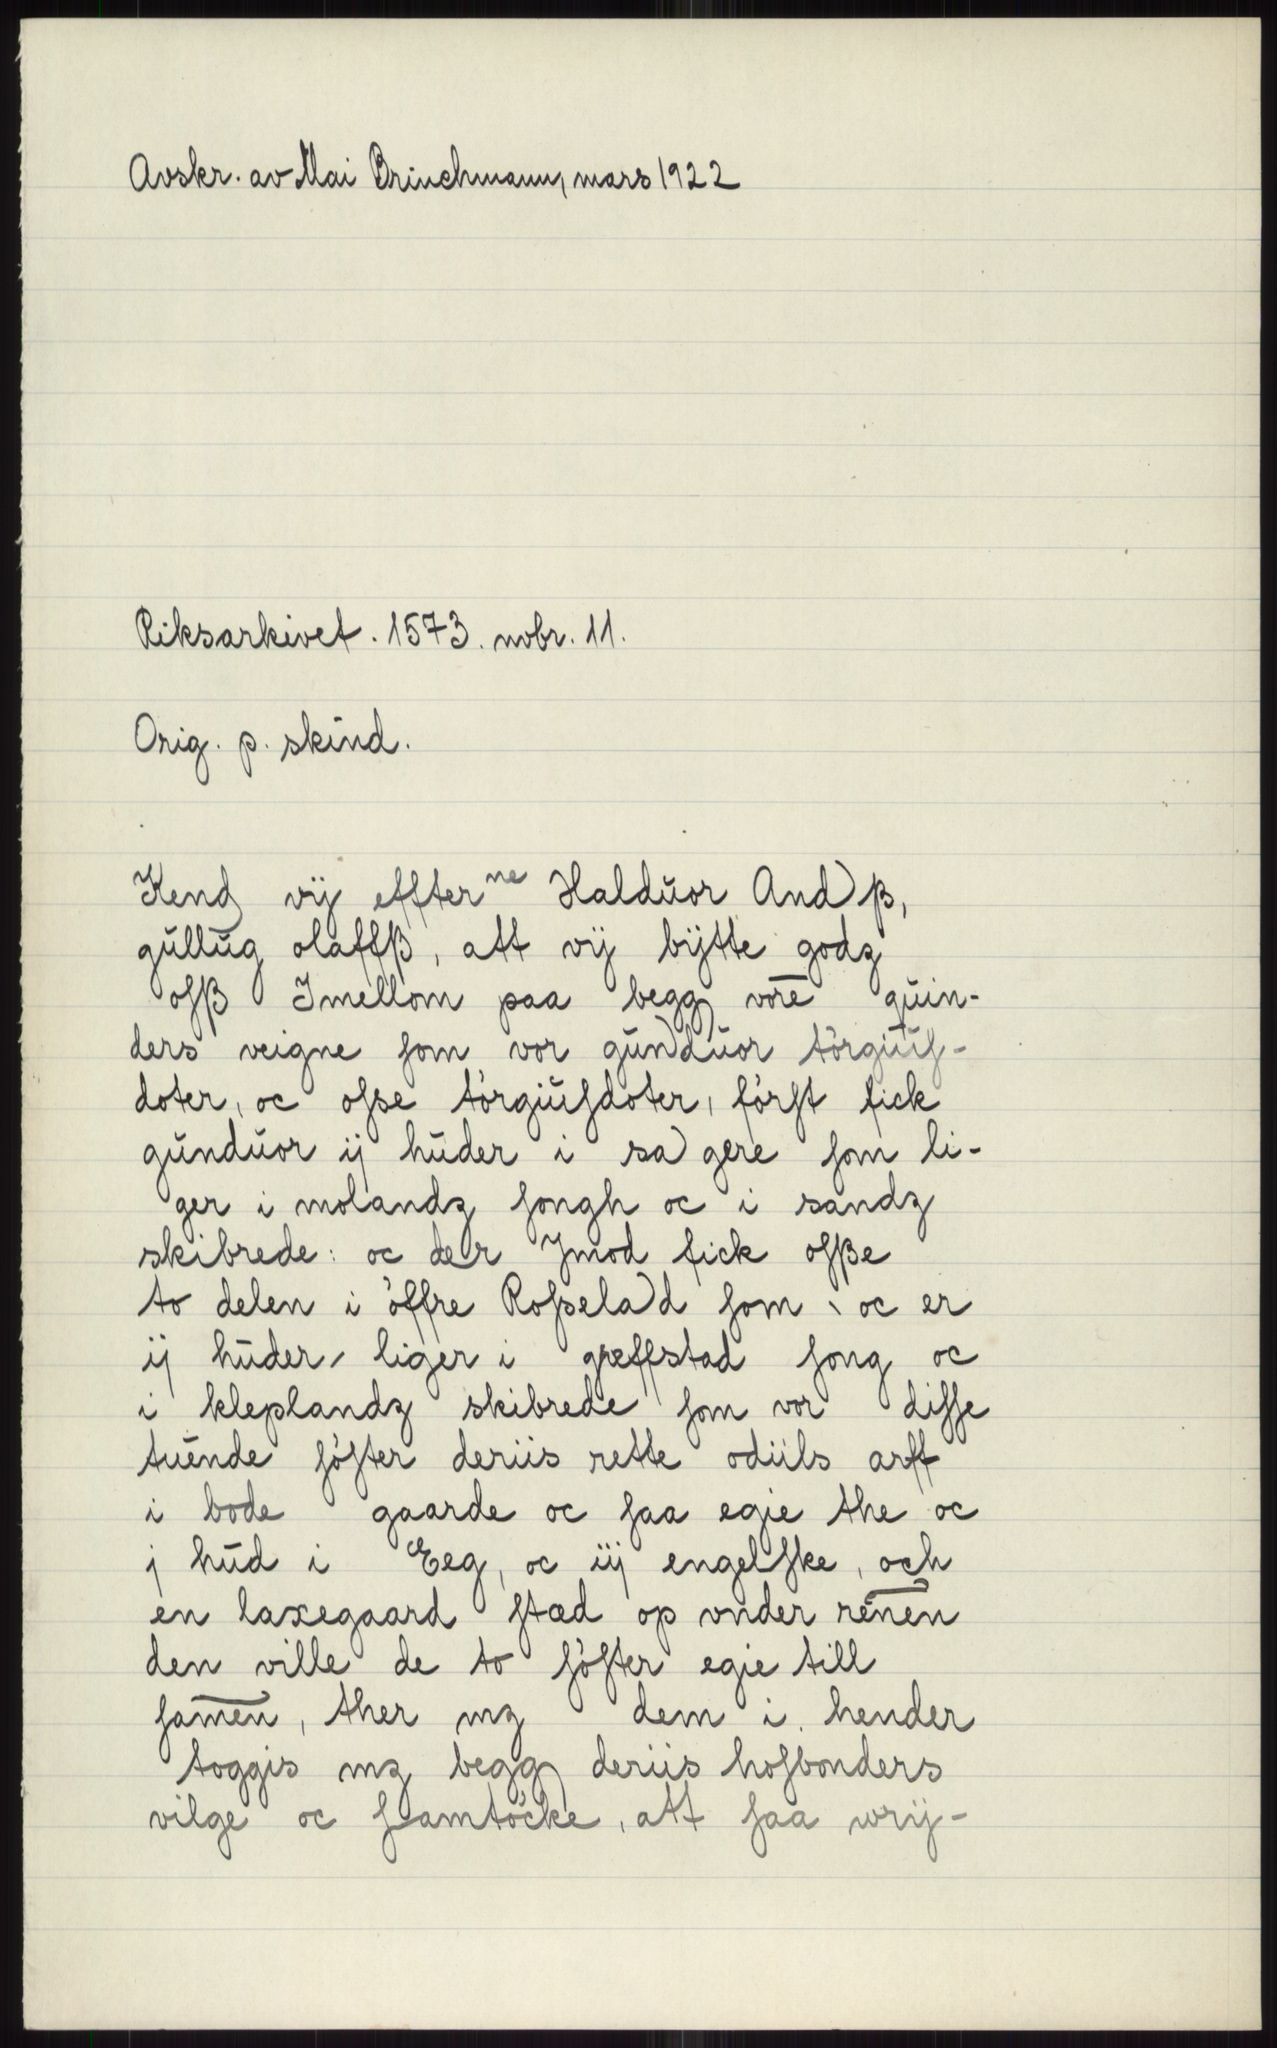 Avskr. av Mai Brinchmann, mars 1922
Riksarkivet. 1573. nobr. 11.
Orig. p. skind.
Kend vij effter ne Halduor And ß,
gullug olaffß, att vij bytte godz
osß Imellom paa begg vore quin-
ders veigne som vor gunduor törgius-
doter, oc osse törgiusdoter, först fick
gunduor ij huder i sa gere som li-
ger i molandz songh oc i sandz
skibrede: oc der Jmod fick osße
to delen i öffre Rosselad som oc er
ij huder, liger i greffstad song oc
i kleplandz skibrede som vor disse
tuende söster deriis rette odiils arff
i bode gaarde oc saa egie the oc
j hud i Eeg, oc iij engelske, och
en laxegaard stæd op vnder renen
den ville de to söster egie till
samen, ther mz dem i hender
toggis mz begg deriis hosbonders
vilge oc samtöcke, att saa vrij-